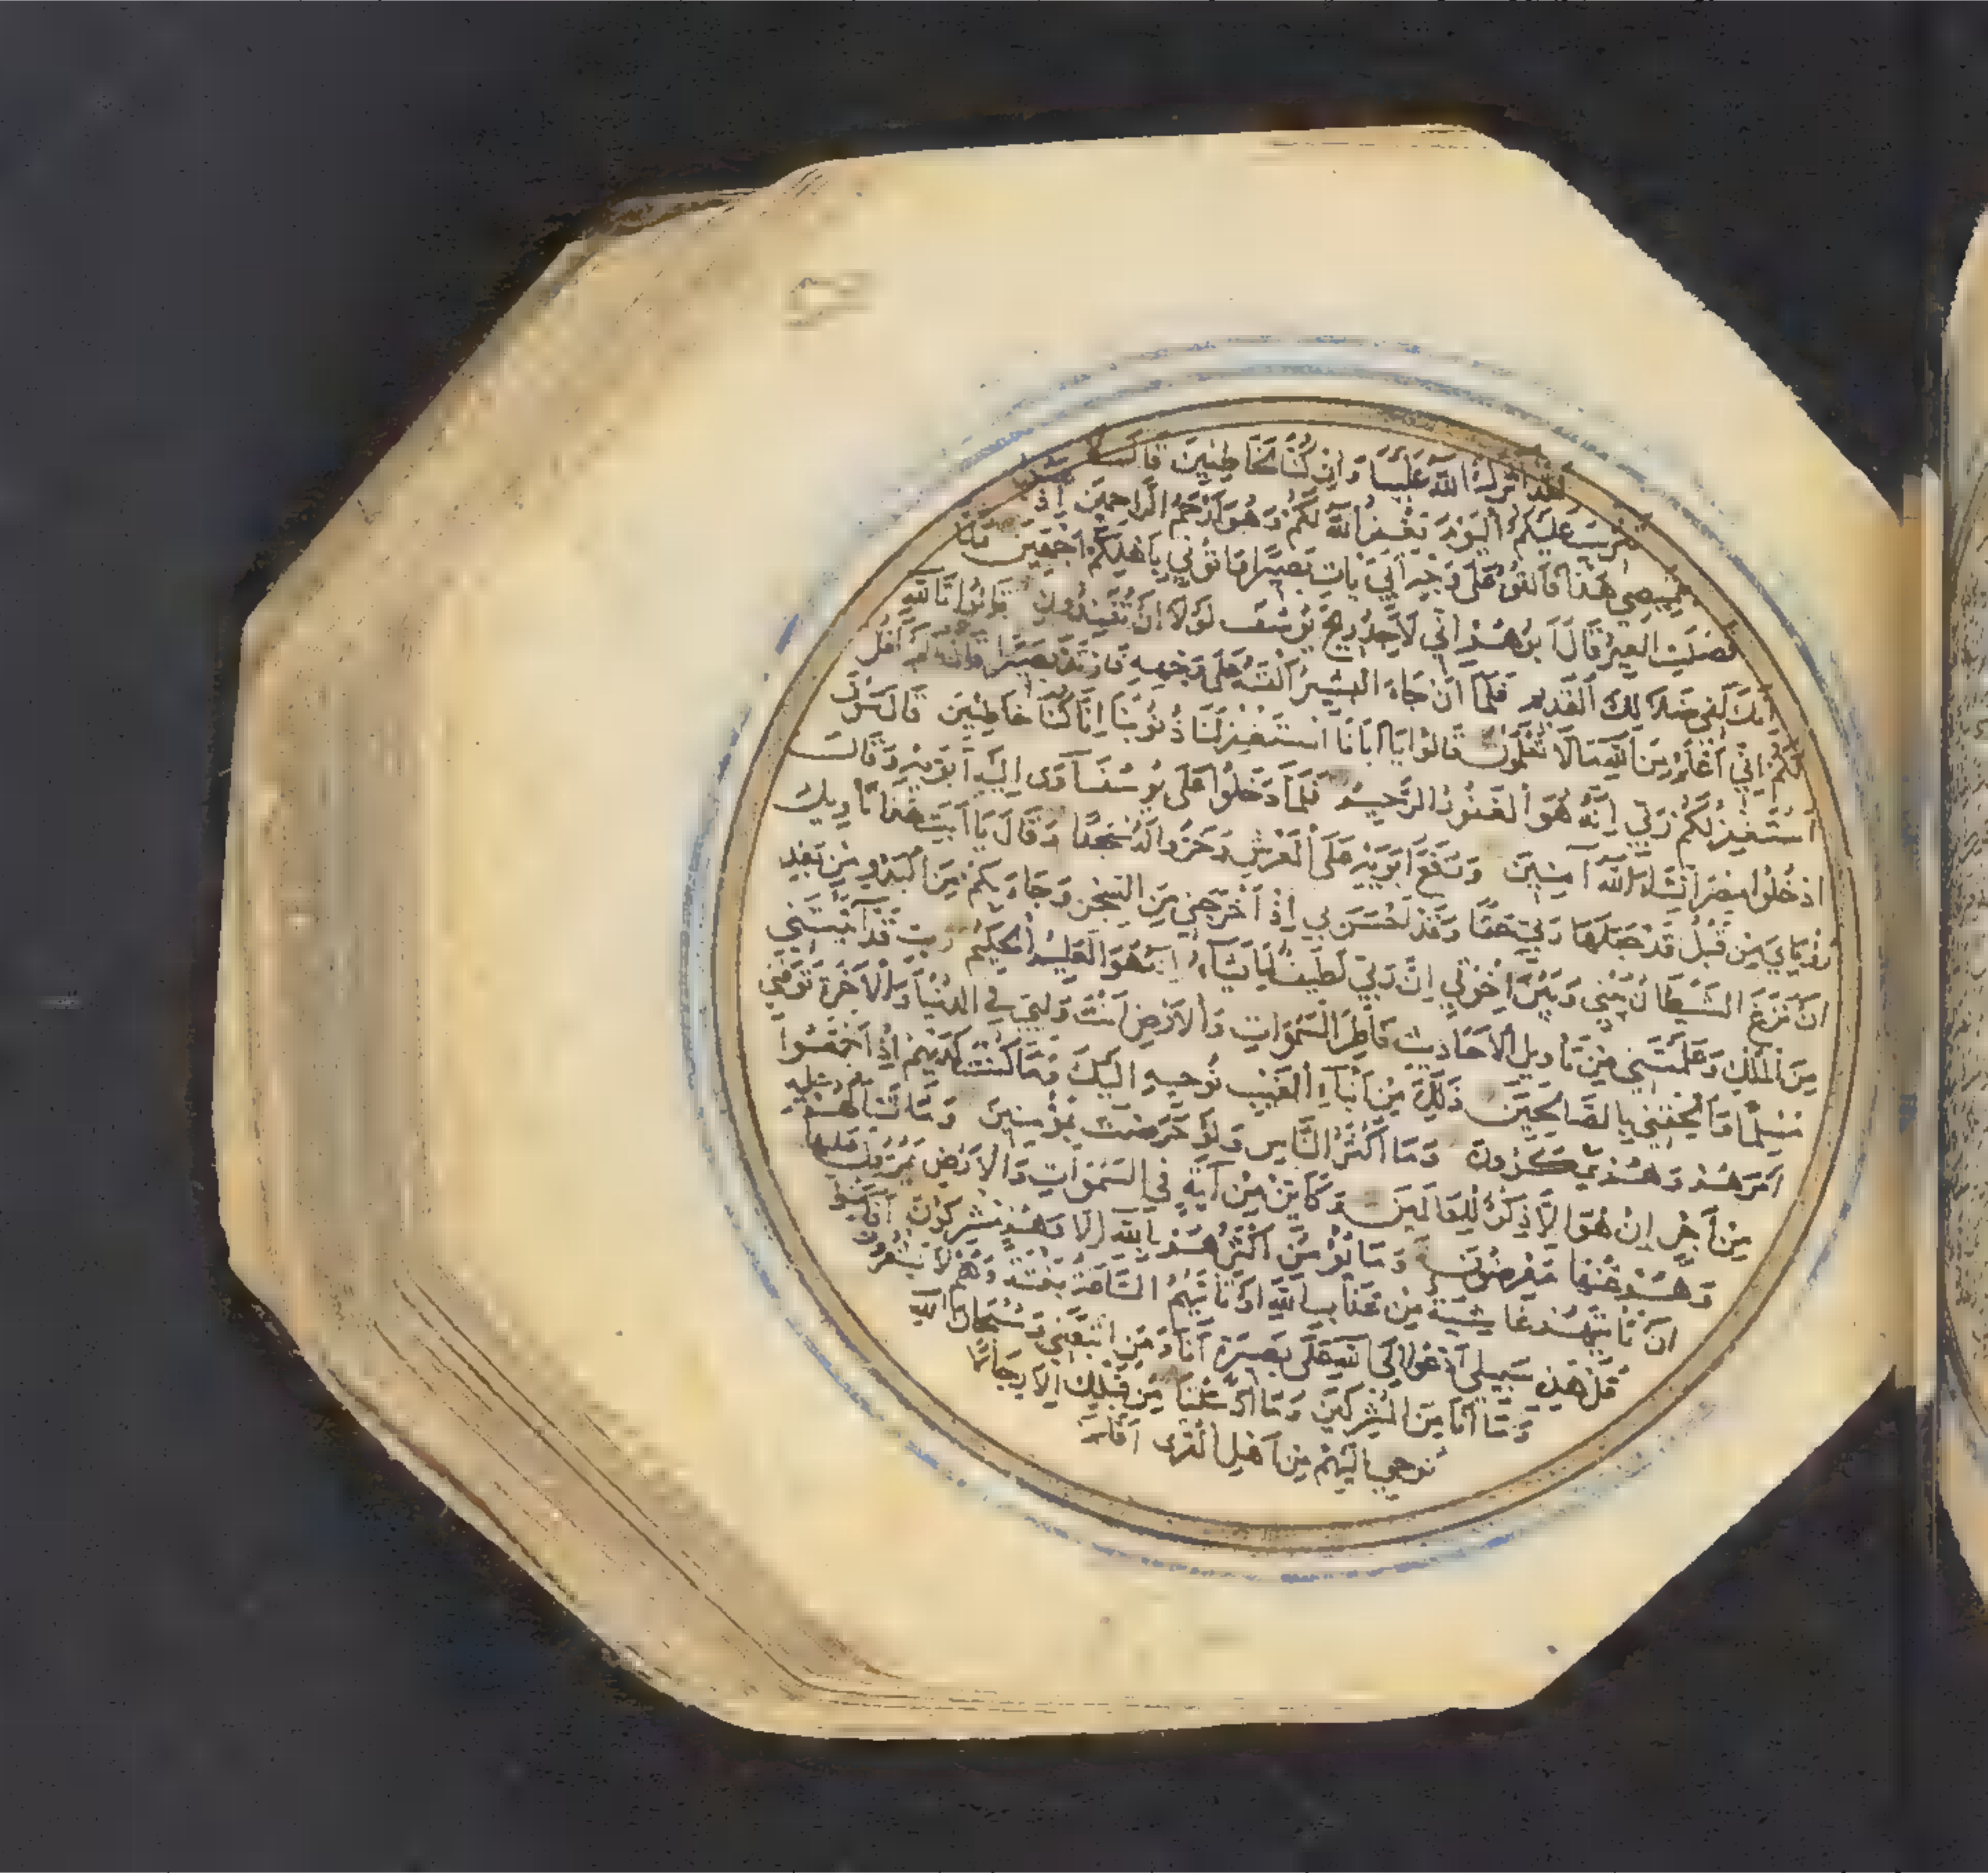 لقد اثرك الله علينا وان كنا لخاطئين قال لا
تثريب عليكم اليوم يغفر الله لكم وهو ارحم الراحمين اذ
بقميصي هذا فالقوه على وجه ابي يات بصيرا واتوني باهلكم اجمعين
فصلت العير قال ابوهم اني لاجد ريح يوسف لولا ان تفندون قالوا تالله
انك لفي ضلالك القديم فلما ان جاء البشير القته على وجهه فارتد بصيرا قال الم اقل
لكم اني اعلم من الله ما لا تعلمون قالوا يا ابانا استغفر لنا ذنوبنا انا كنا خاطئين قال سوف
استغفر لكم ربي انه هو الغفور الرحيم فلما دخلوا على يوسف آوى اليه ابويه وقال
ادخلوا مصر ان شاء الله آمنين ورفع ابويه على العرش وخروا له سجدا وقال يا ابت هذا تاويل
رؤياي من قبل قد جعلها ربي حقا وقد احسن بي اذ اخرجني من السجن وجاء بكم من البدو من بعد
ان نزغ الشيطان بيني وبين اخوتي ان ربي لطيف لما يشاء انه هو العليم الحكيم رب قد آتيتني
من الملك وعلمتني من تاويل الاحاديث فاطر السموات والارض انت وليي في الدنيا والآخرة توفني
مسلما والحقني بالصالحين ذلك من انباء الغيب نوحيه اليك وما كنت لديهم اذ اجمعوا
امرهم وهم يمكرون وما اكثر الناس ولو حرصت بمؤمنين وما تسالهم عليه
من اجر ان هو الا ذكر للعالمين وكاين من آية في السموات والارض يمرون عليها
وهم عنها معرضون وما يؤمن اكثرهم بالله الا وهم مشركون افامنوا
ان تاتيهم غاشية من عذاب الله او تاتيهم الساعة بغتة وهم لا يشعرون
قل هذه سبيلي ادعوا الى الله على بصيرة انا ومن اتبعني وسبحان الله
وما انا من المشركين وما ارسلنا من قبلك الا رجالا
نوحي اليهم من اهل القرى افلم